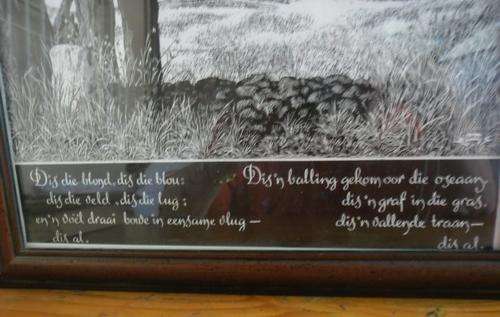 Dis die blond, dis die blou:
dis die veld, dis die lug;
en 'n voël draai bowe in eensame vlug —
dis al.
Dis 'n balling gekom oor die oseaan,
dis 'n graf in die gras,
dis 'n vallende traan —
dis al.